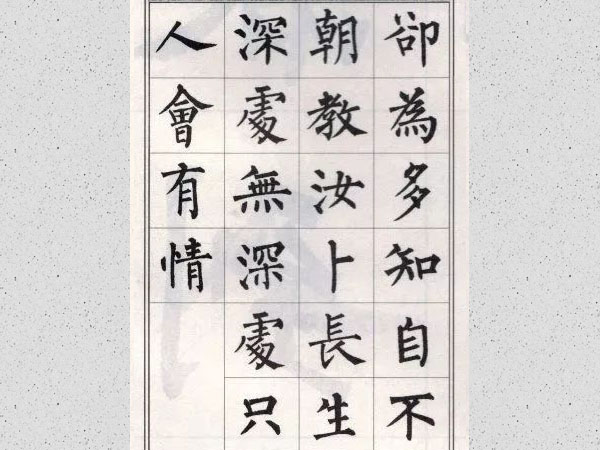 卻為多知自不
朝教汝卜長生
深處無深處只
人會有情